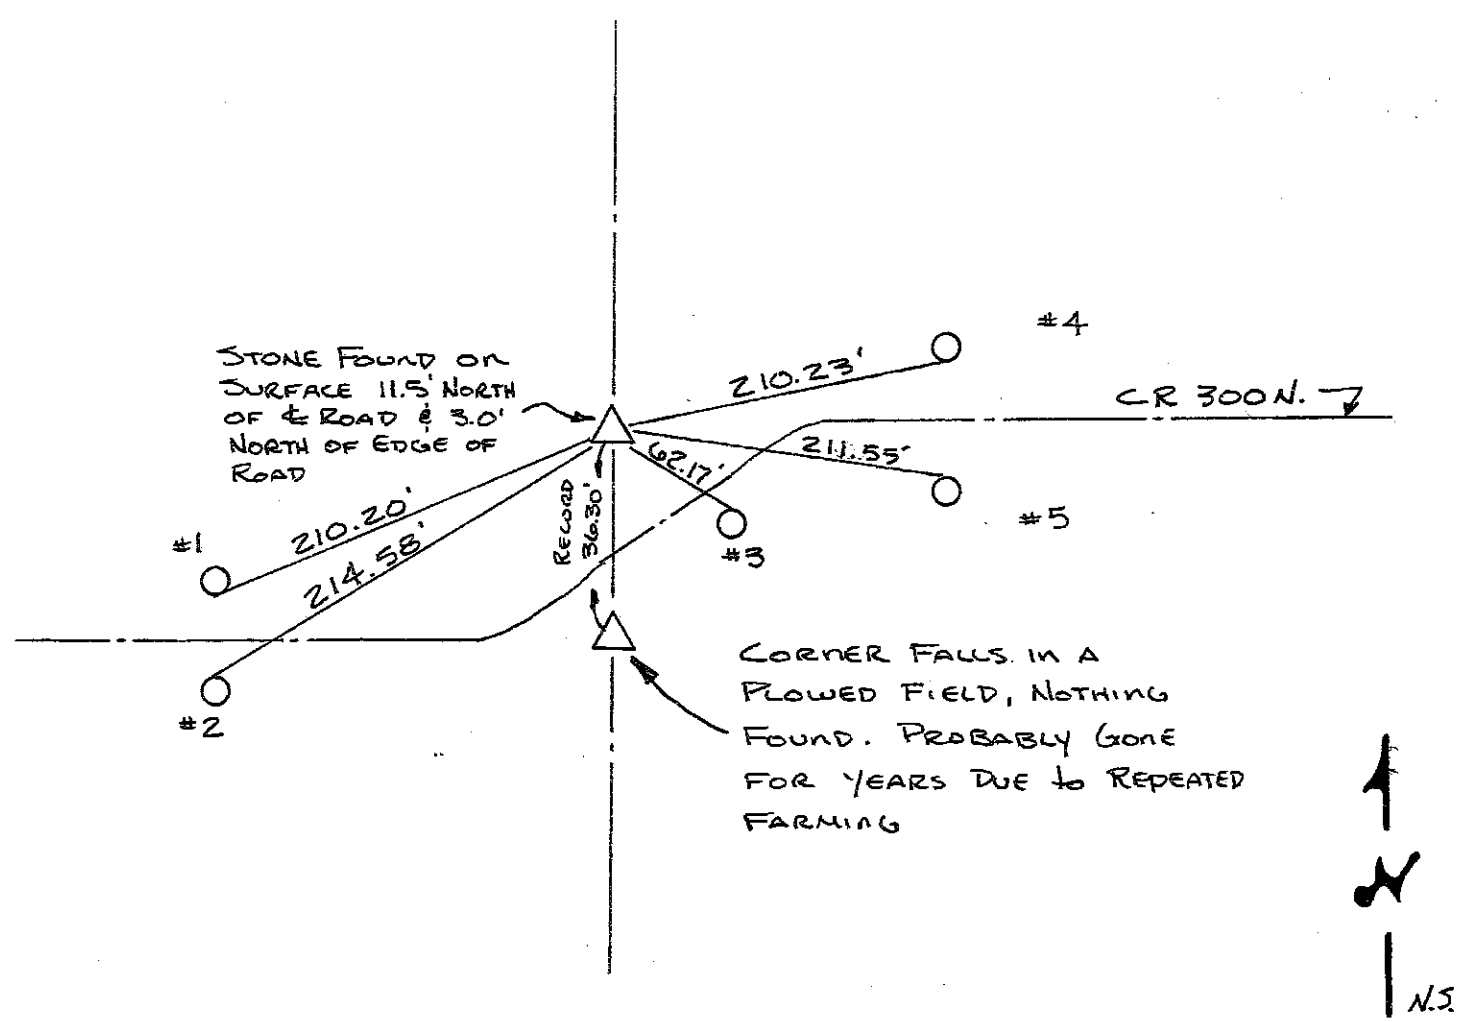 #4
210.23'
STONE FOUND ON
SURFACE 11.5' NORTH
OF ℄ ROAD & 3.0'
NORTH OF EDGE OF
ROAD
CR 300 N.
211.55'
62.17'
RECORD
36.30'
#5
#3
210.20'
#1
214.58'
#2
CORNER FALLS IN A
PLOWED FIELD, NOTHING
FOUND. PROBABLY GONE
FOR YEARS DUE to REPEATED
FARMING
N
N.S.